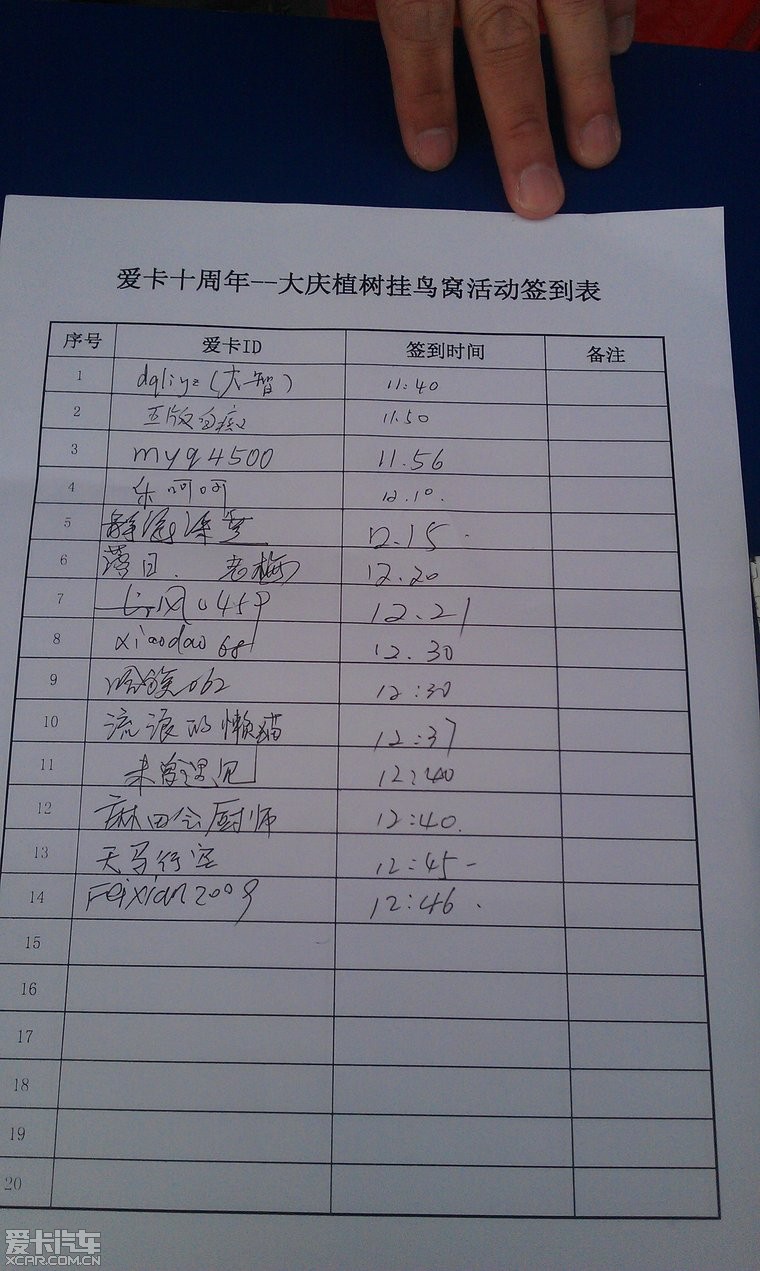 爱卡十周年--大庆植树挂鸟窝活动签到表
序号 爱卡ID 签到时间 备注
1 dqliyz(大智) 11:40
2 11.50
3 myq4500 11.56
4 乐呵呵 12.10.
5 12.15
6 落日 . 老梅 12.20
7 长风0459 12.21
8 xiaodao68 12.30
9 哈族062 12:30
10 流浪的懒猫 12:37
11 未曾遇见 12:40
12 麻田会厨师 12:40.
13 天马行空 12:45-
14 Feixian2009 12:46.
15
16
17
18
19
20
爱卡汽车
XCAR.COM.CN